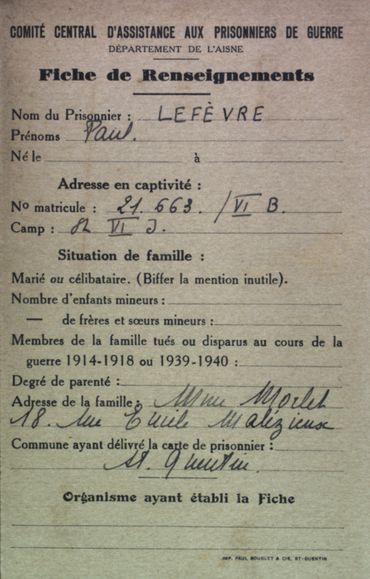 COMITÉ CENTRAL D'ASSISTANCE AUX PRISONNIERS DE GUERRE
DÉPARTEMENT DE L'AISNE
Fiche de Renseignements
Nom du Prisonnier : LEFÈVRE
Prénoms Paul.
Né le à
Adresse en captivité :
No matricule : 21.663. / VI B.
Camp : St VI J.
Situation de famille :
Marié ou célibataire. (Biffer la mention inutile).
Nombre d'enfants mineurs :
— de frères et sœurs mineurs :
Membres de la famille tués ou disparus au cours de la
guerre 1914-1918 ou 1939-1940 :
Degré de parenté :
Adresse de la famille : Mme Morlet
18. rue Emile Malézieux
Commune ayant délivré la carte de prisonnier :
St. Quentin.
Organisme ayant établi la Fiche
IMP. PAUL & CIE, ST-QUENTIN